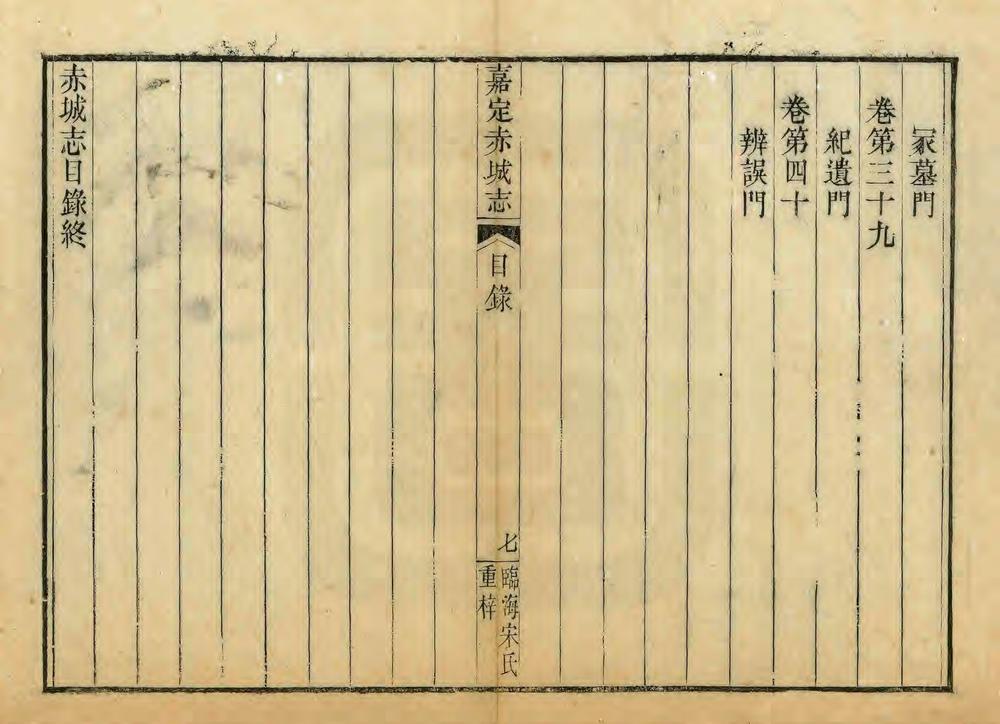 冢墓門
卷第三十九
紀遺門
卷第四十
辨誤門
嘉定赤城志
目錄
七
臨海宋氏
重梓
赤城志目錄終